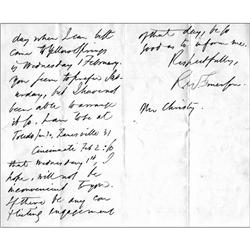 day when I can best
come to Yellow Springs
is Wednesday 1 February.
You seem to prefer Sat-
urday, but I have not
been able to arrange
it so. I am to be at
Toledo Zanesville 31
Cincinnati Feb 2
that Wednesday 1st, I
hope, will not be
inconvenient to you.
If there be any con
flicting engagement
of that day, be so
good as to inform me.
Respectfully,
R. W. Emerson.
Mr Christy.